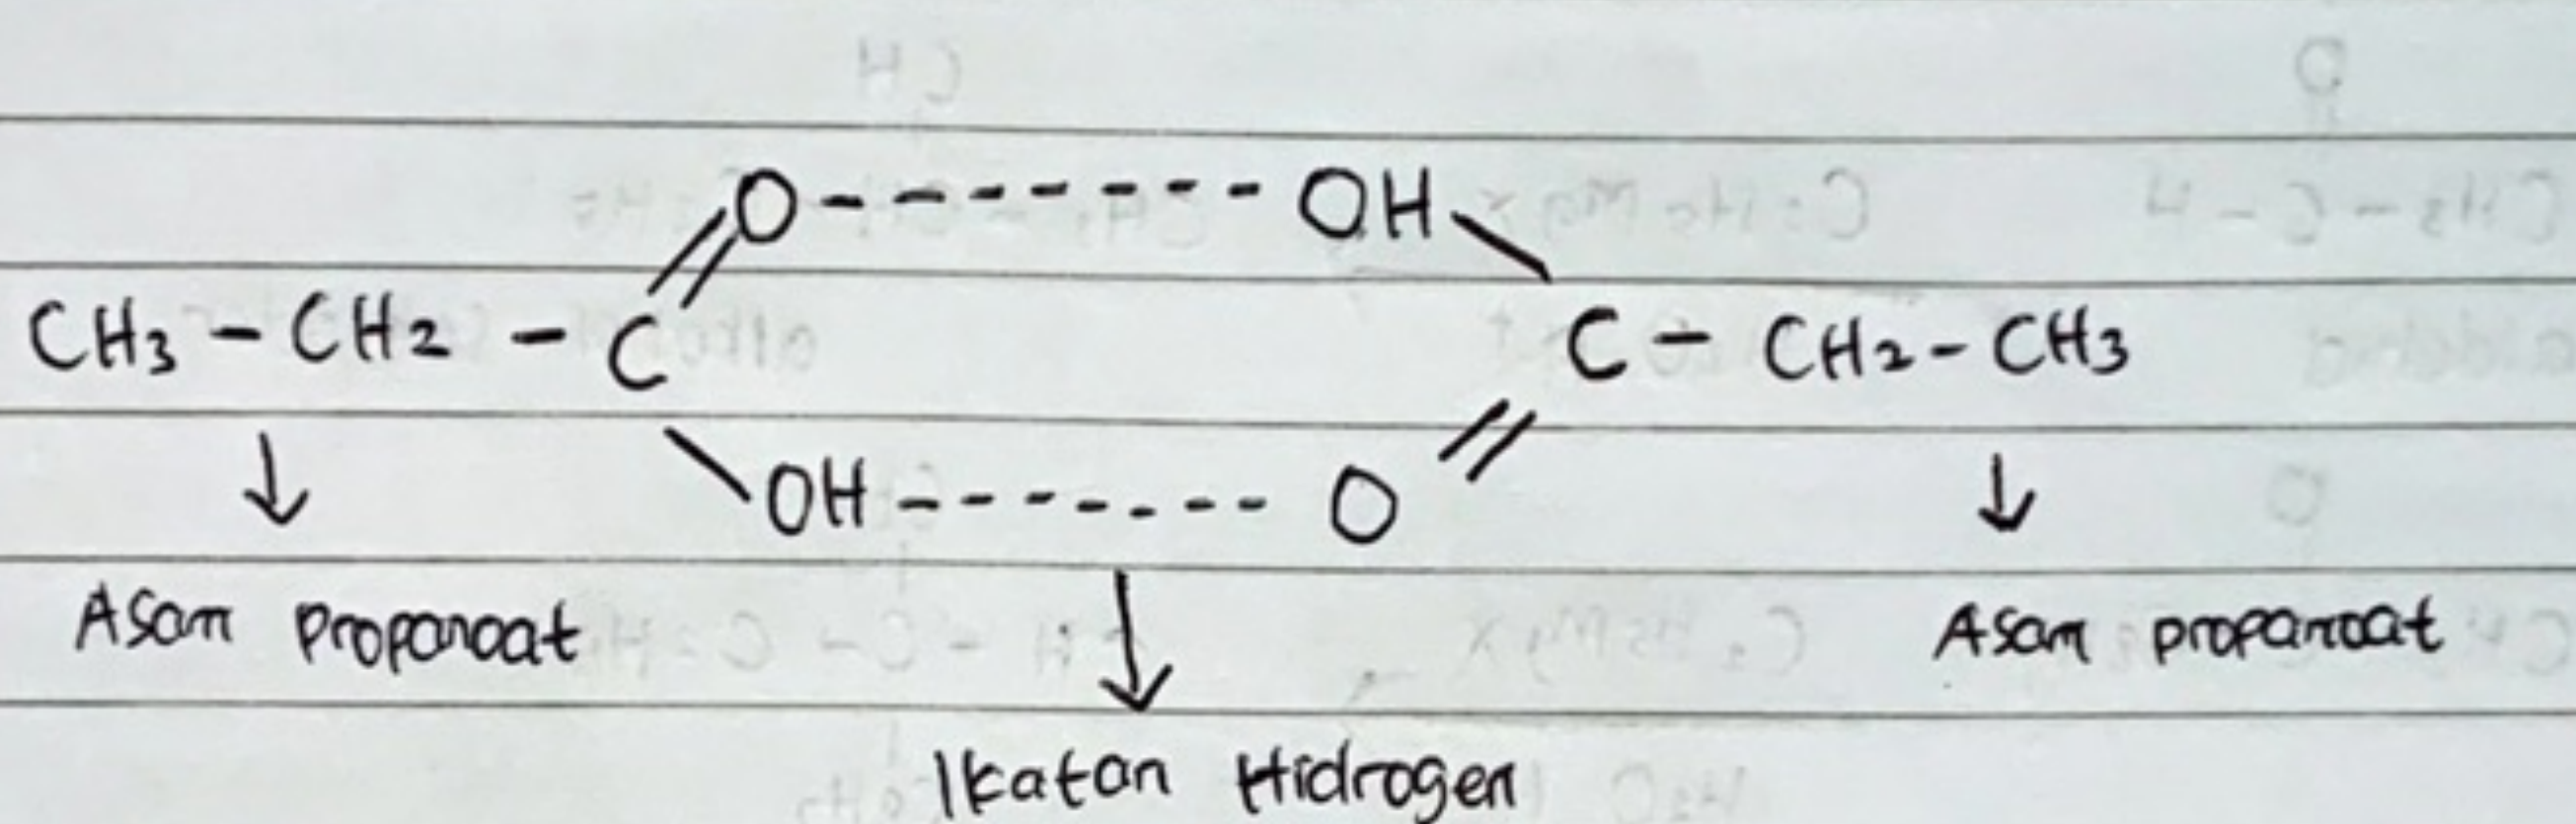 O-------- OH
CH3 - CH2 - C C - CH2 - CH3
OH ------- O
Asam propanoat Asam propanoat
Ikatan Hidrogen